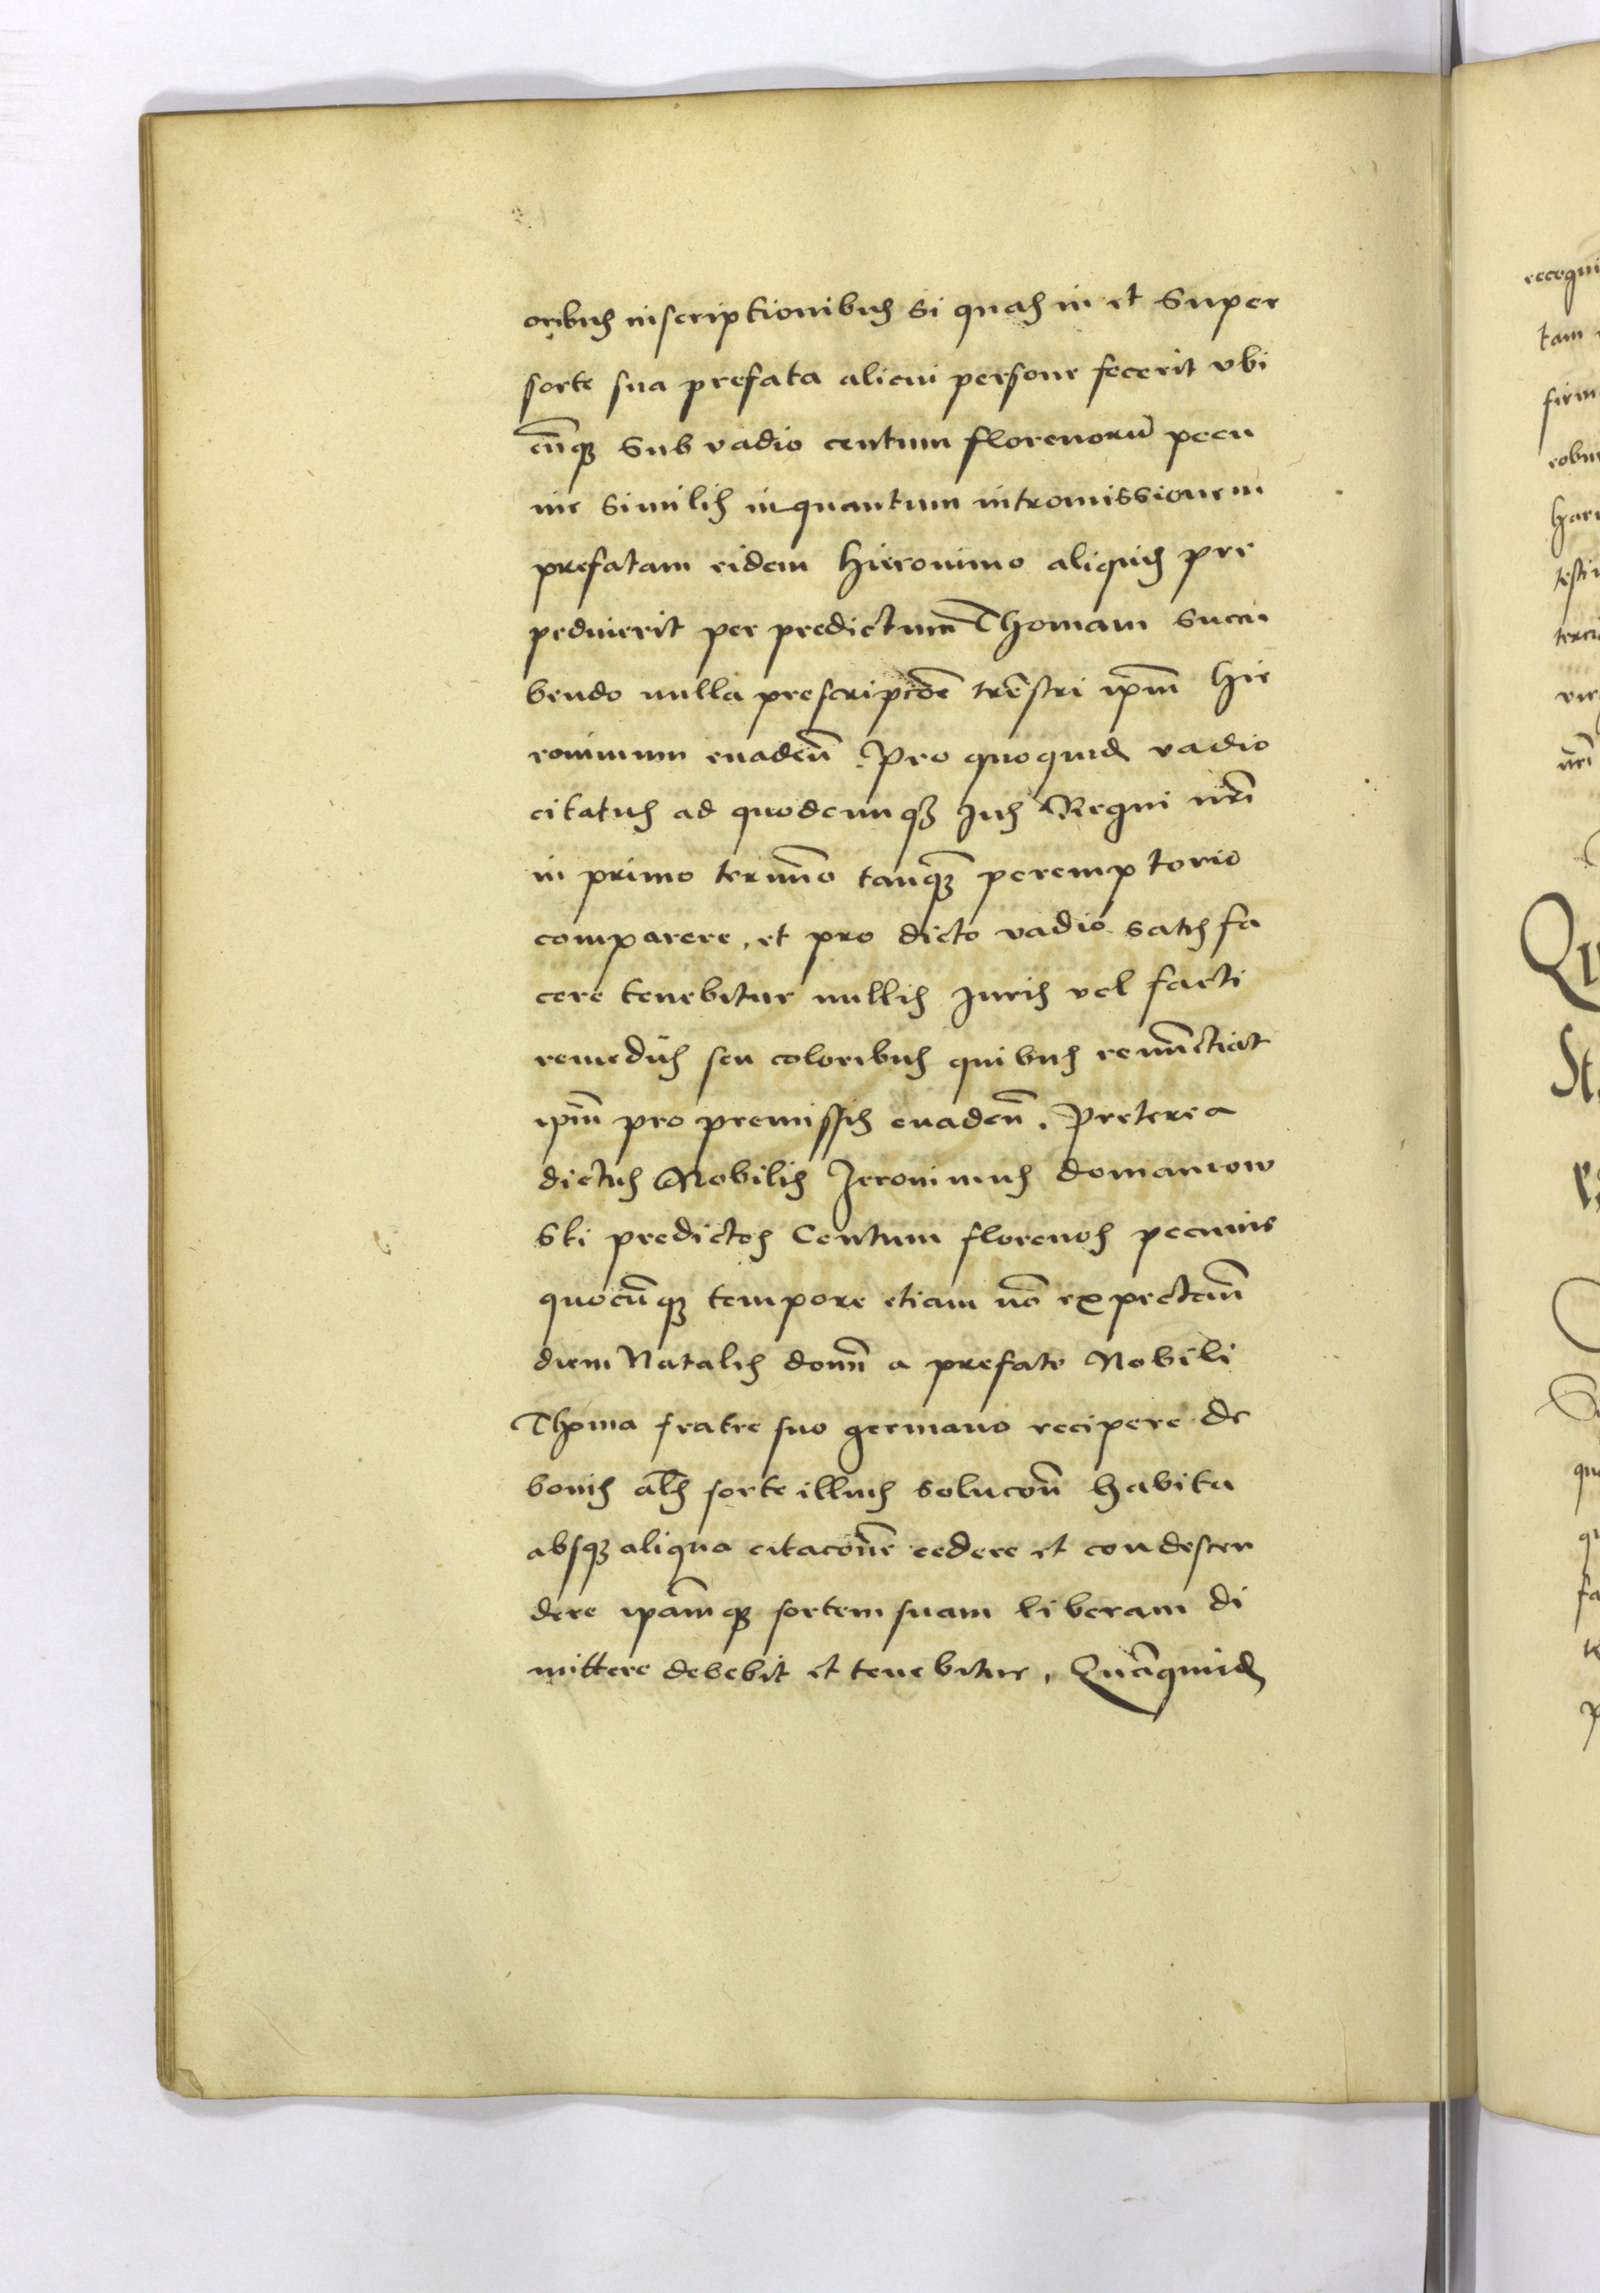 oribus inscriptionibus si quas in et super
sorte sua prefata alicui persone fecerit vbi
cu̅q₃ sub vadio centum florenoru̅ pecu
nie similis inquantum intromissionem
prefatam eidem Hieronimo aliquis pre
pediuerit per predictum Thomam succu
bendo nulla prescripco̅e tre̅stri ip̅m Hie
ronimum euaden̅. Pro quoquid vadio
citatus ad quodcumq₃ Jus Regni nr̅i
in primo termi̅o tanq̅₃ peremptorio
comparere, et pro dicto vadio satisfa
cere tenebitur nullis Juris vel facti
remedijs seu coloribus quibus renu̅ctiat
ip̅m pro premissis euaden̅. Preterea
dictus Nobilis Jeronimus domaniow
ski predictos Centum florenos pecunie
quocu̅q₃ tempore etiam no̅ expectan̅
diem Natalis domi̅ a prefato Nobili
Thoma fratre suo germano recipere de
bonis al̅s sorte illius solucon̅ habita
absq₃ aliqua citaco̅ne cedere et condescen
dere ipa̅mq₃ sortem suam liberam di
mittere debebit et tenebitur, Qua̅quid
recogni
tam
firm
robur
Har
testi
terci
vir
nr̅i
Qu
St